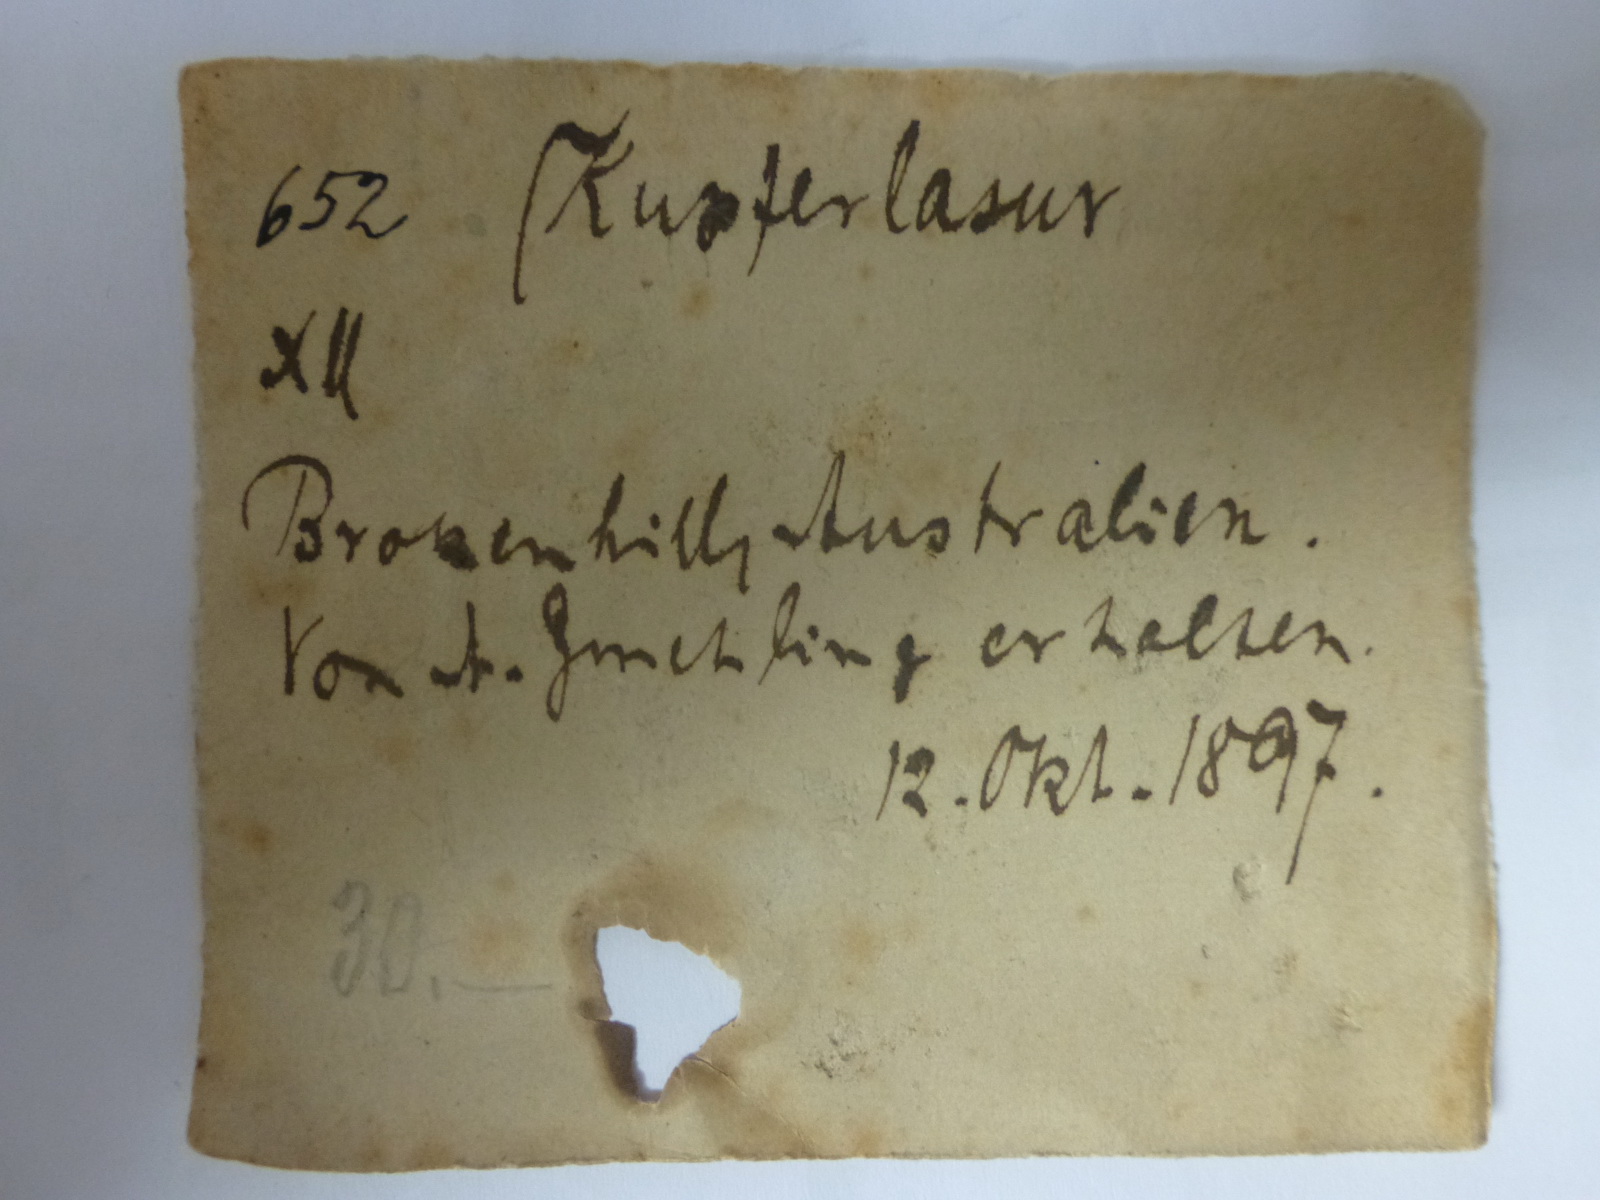 652 Kupferlasur
XII
Brokenhill, Australien.
Von A. Gmehling erhalten.
12. Okt. 1897.
30.—